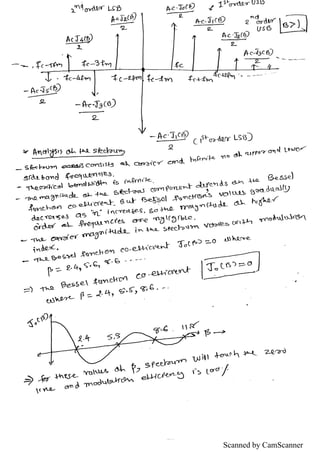 2nd order LSB
Ac.J2(B)/2
Ac.J1(B)/2
1st order USB
2nd order USB
B>1
Ac.J4(B)/2
Ac.J2(B)/2
Ac.J3(B)/2
fc-3fm
fc
fc-4fm
fc-2fm
fc-fm
fc+fm
-Ac.J5(B)/2
-Ac.J3(B)/2
-Ac.J1(B)/2 (1st order LSB)
* Analysis of the spectrum
- spectrum consists of carrier and infinite no of upper and lower
sideband frequencies.
- Theoretical bandwidth is infinite.
- The magnitude of the spectral component depends on the Bessel
function co-efficient. But Bessel function's values gradually
decreases as 'n' increases, so the magnitude of higher
order of frequencies are negligible.
- The carrier magnitude in the spectrum varies with modulation
index.
- The Bessel function co-efficient J0(B)=0 where
β = 2.4, 5.6, 8.6 .....
=> The Bessel function co-efficient J0(B)=0
where β = 2.4, 5.5, 8.6, ..
J0(B)
2.4 5.5 8.6 11.8 β→
=> for these values of β, spectrum will touch the zero
line and modulation efficiency is 100%
Scanned by CamScanner